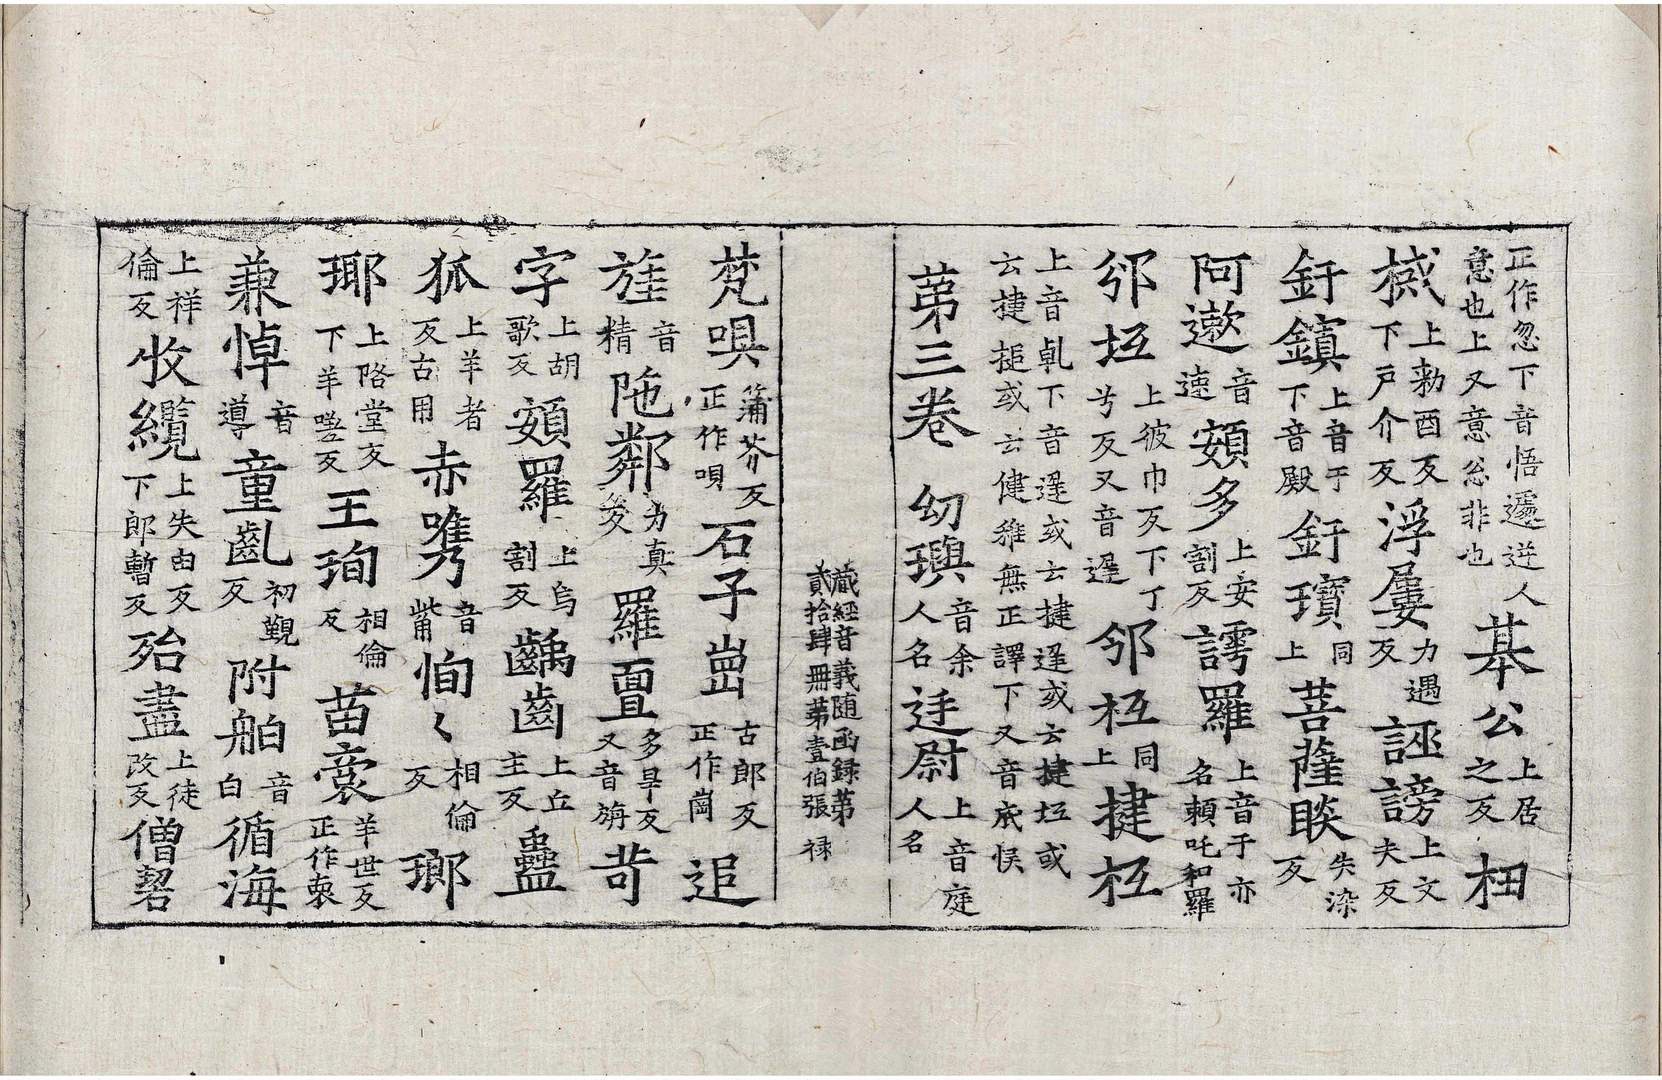 正作忽下音悟遞送人
意也上又意忩非也 基公上居之反 柤
棫上勑酉反下戸介反 浮屢力遇反 誣謗上文夫反
釪鎮上音于下音殿 釪璸上同 菩薩睒失染反
阿遬音速 頞多上安割反 謣羅上音于亦名賴吒和羅
邠坘上彼巾反下丁兮反又音遲 邠柢上同 揵柢
上音乹下音遲或云揵遲或云揵坘或
云揵搥或云健稚無正譯下又音底悮
苐三卷 幼璵音余人名 迋尉上音庭人名
藏經音義随函録苐
貳拾肆冊苐壹伯張 禄
梵唄蒲芥反正作唄 石子崗古郎反正作崗 追
旌音精 陁鄰力真反 羅亶多旱反又音旃 苛
字上胡歌反 頞羅上烏割反 齲齒上丘主反 蠱
狐上羊者反古用 赤㗱音觜 恂〻相倫反 瑯
瑘上路堂反下羊嗟反 王珣相倫反 苗裔羊世反正作裔
兼悼音導 童齓初覲反 附舶音白 循海
上祥倫反 收纜上失由反下郎暫反 殆盡上徒改反 僧䂮